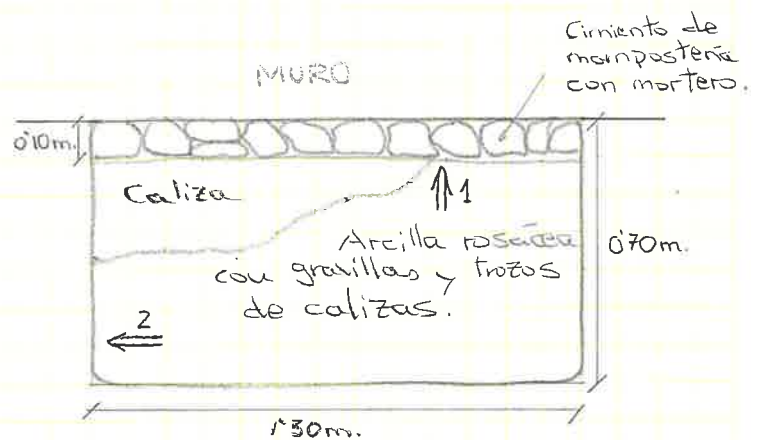 Cimiento de
mampostería
con mortero.
MURO
0'10m.
Caliza
1
Arcilla rosácea
con gravillas y trozos
de calizas.
0'70m.
2
1'30m.